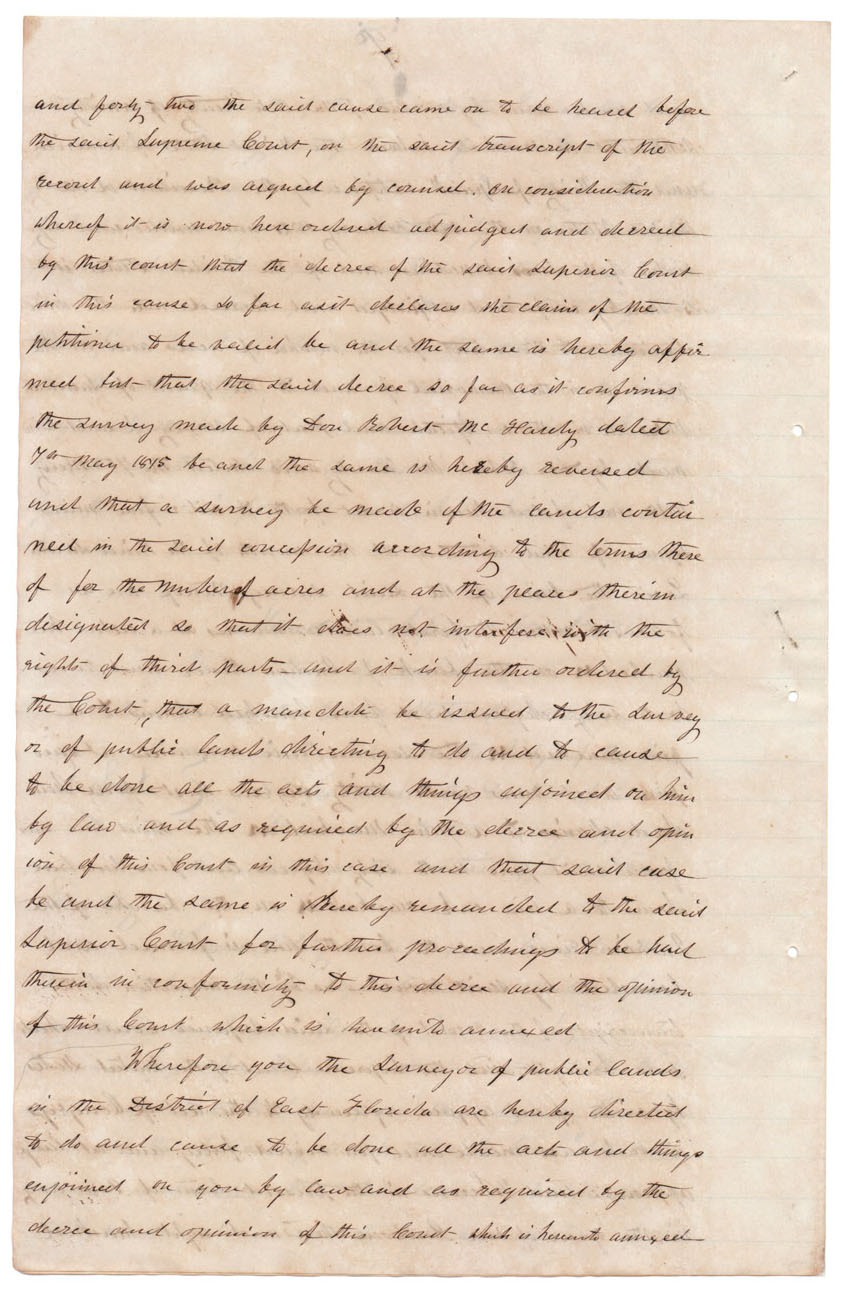 and forty two the said cause came on to be heard before
the said Supreme Court, on the said transcript of the
record and was argued by counsel. On consideration
whereof it is now here ordered adjudged and decreed
by this court that the decree of the said Superior Court
in this cause so far as it declares the claim of the
petitioner to be valid be and the same is hereby affir
med but that the said decree so far as it confirms
the survey made by Don Robert McHardy dated
7th May 1815 be and the same is hereby reversed
and that a survey be made of the lands contai
ned in the said concession according to the terms there
of for the number of acres and at the places therein
designated so that it does not interfere with the
rights of third parts and it is further ordered by
the Court, that a mandate be issued to the Survey
or of public lands directing to do and to cause
to be done all the acts and things enjoined on him
by law and as required by the decree and opin
ion of this Court in this case and that said case
be and the same is hereby remanded to the said
Superior Court for further proceedings to be had
therein in conformity to this decree and the opinion
of this Court which is hereunto annexed
Wherefore you the Surveyor of public lands
in the District of East Florida are hereby directed
to do and cause to be done all the acts and things
enjoined on you by law and as required by the
decree and opinion of this Court which is hereunto annexed